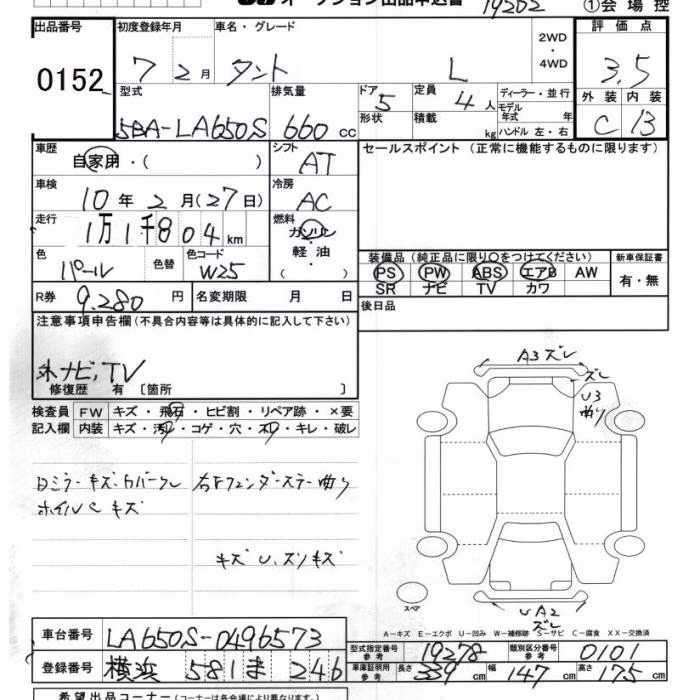 オークション出品申込書 19202 ①会場控
出品番号 0152
初度登録年月 7年 2月
車名・グレード タント L
2WD・4WD
評価点 3.5
外装 C 内装 13
型式 5BA-LA650S
排気量 660 cc
ドア 5 形状
定員 4人 積載 kg
ディーラー・並行
モデル年式 年
ハンドル 左・右
車歴 自家用・( )
シフト AT
セールスポイント (正常に機能するものに限ります)
車検 10年2月(27日)
冷房 AC
走行 1万1千804 km
燃料 ガソリン・軽油・( )
色 パール 色替 色コード W25
装備品 (純正品に限り○をつけてください)
PS PW ABS エアB AW
SR ナビ TV カワ
新車保証書 有・無
R券 9.280 円 名変期限 月 日
後日品
注意事項申告欄 (不具合内容等は具体的に記入して下さい)
外ナビ,TV
修復歴 有 [箇所 ]
検査員記入欄
FW キズ・飛石・ヒビ割・リペア跡・×要
内装 キズ・汚レ・コゲ・穴・スレ・キレ・破レ
ホイルC キズ
A3 ズレ
ズレ
U3
曲り
スペア
UA2
ズレ
A-キズ E-エクボ U-凹み W-補修跡 S-サビ C-腐食 XX-交換済
車台番号 LA650S-0496573
登録番号 横浜 581 ま 246
型式指定番号 参考 19278 類別区分番号 参考 0101
車庫証明用 参考 長さ 339 cm 幅 147 cm 高さ 175 cm
希望出品コーナー (コーナーは各会場により異なります。)